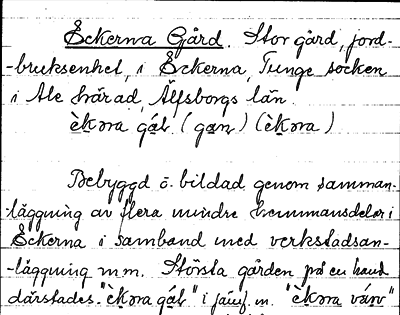 Äckerna Gård. Stor gård, jord-
-bruksenhet, i Äckerna, Tunge socken
i Ale härad, Älfsborgs län.
Bebyggd o. bildad genom samman-
-läggning av flera mindre hemmansdelar i
Äckerna i samband med verkstadsan-
-läggning m.m. Största gården på en hand
därstades. " " i jämf. m. " "